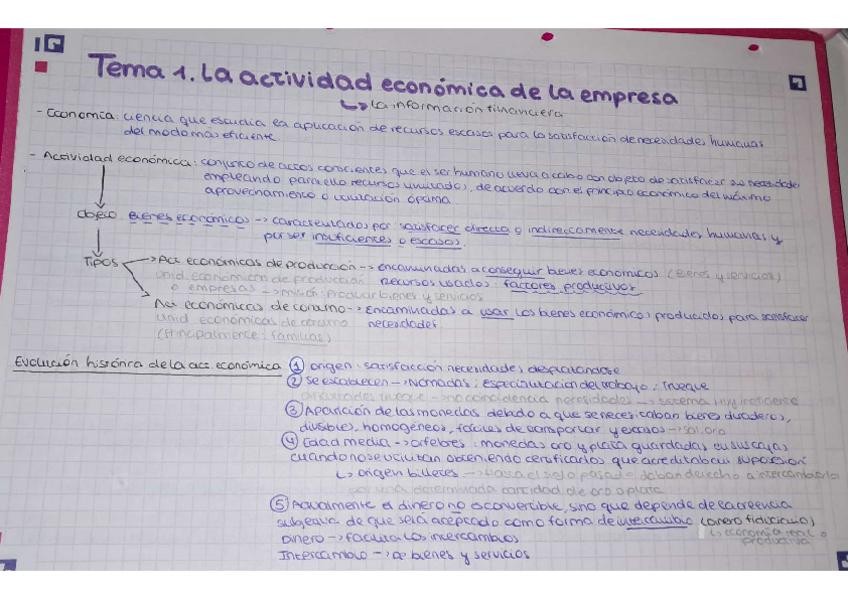 Tema 1. La actividad económica de la empresa
↳ La información financiera
- Economía: ciencia que estudia la aplicación de recursos escasos para la satisfacción de necesidades humanas
del modo más eficiente
- Actividad económica: conjunto de actos conscientes que el ser humano lleva a cabo con objeto de satisfacer sus necesidades
empleando para ello recursos limitados, de acuerdo con el principio económico del máximo
aprovechamiento o utilización óptima.
Objeto: bienes económicos → caracterizados por satisfacer directa o indirectamente necesidades humanas y
por ser insuficientes o escasos.
Tipos → Act económicas de producción → encaminadas a conseguir bienes económicos (bienes y servicios)
unid. económicas de producción recursos usados: factores productivos
o empresas → misión: producir bienes y servicios
Act económicas de consumo → Encaminadas a usar los bienes económicos producidos para satisfacer
unid económicas de consumo necesidades
(principalmente: familias)
Evolución histórica de la act. económica ① origen: satisfacción necesidades desplazándose
② se establecen → Nómadas: especialización del trabajo: Trueque
trueque → no coincidencia necesidades → sistema muy ineficiente
③ Aparición de las monedas debido a que se necesitaban bienes duraderos,
divisibles, homogéneos, fáciles de transportar y escasos → sal, oro
④ Edad media → orfebres: monedas oro y plata guardadas en sus cajas
cuando no se utilizaban obteniendo certificados que acreditaban su posesión
↳ origen billetes → hasta el siglo pasado daban derecho a intercambiarlo
por una determinada cantidad de oro o plata
⑤ Actualmente el dinero no es convertible, sino que depende de la creencia
subjetiva de que será aceptado como forma de intercambio (dinero fiduciario)
Dinero → facilita los intercambios ↳ economía real o
productiva
Intercambio → de bienes y servicios